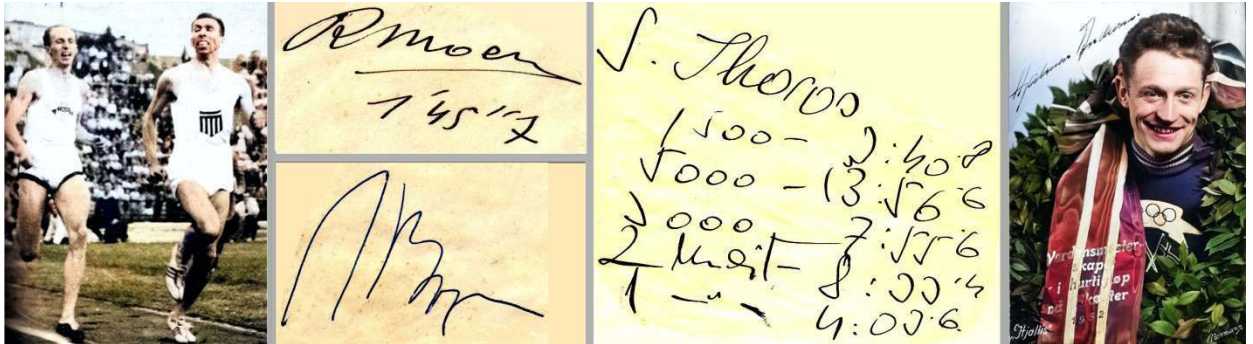 R Moen
1'45"7
S. Iharos
1500 - 3:40.8
5000 - 13:56.6
3000 7:55.6
2 - 8:33.4
1 - " - 4:03.6
Hjalmar Andersen
Verdensmester-
skap
i hurtigløp
på skøiter
1952
"Hjallis"
Normann